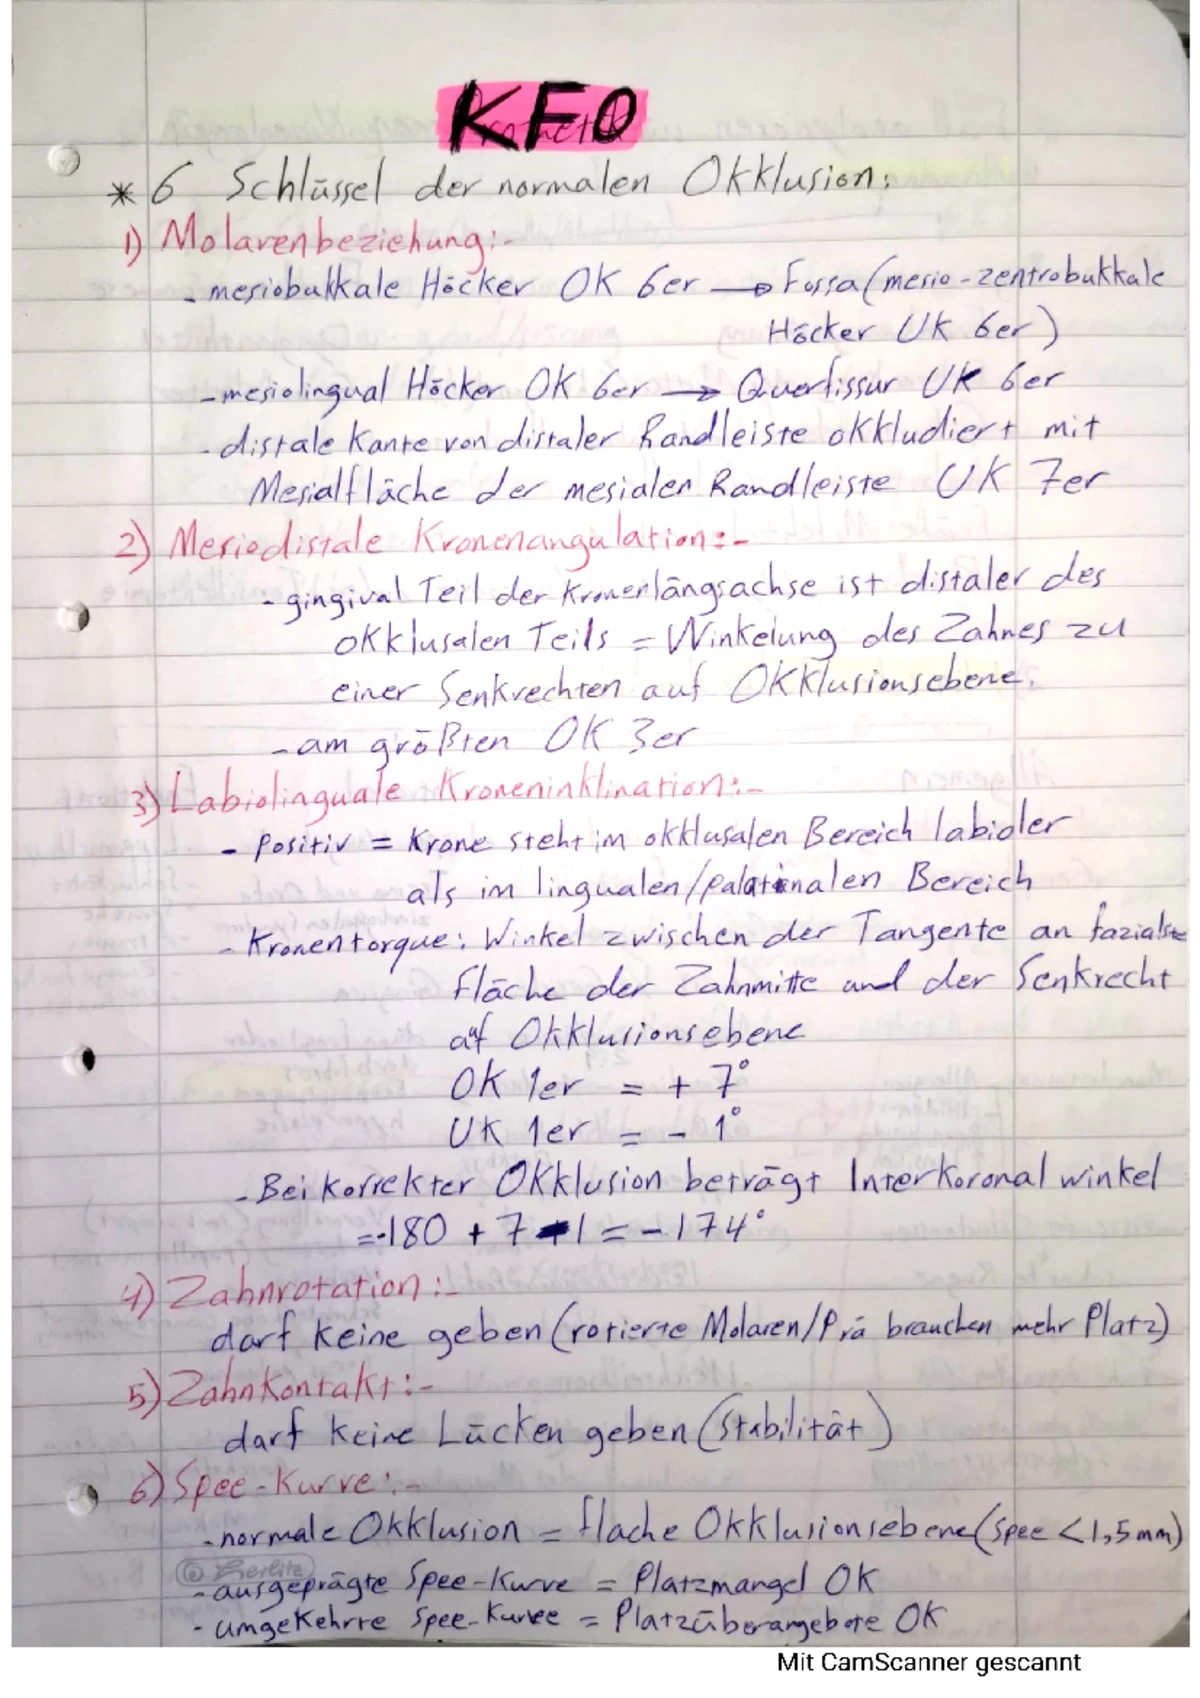 KFO
* 6 Schlüssel der normalen Okklusion:
1) Molarenbeziehung:-
- mesiobukkale Höcker OK 6er → Fossa (mesio-zentrobukkale
Höcker UK 6er)
- mesiolingual Höcker OK 6er → Querfissur UK 6er
- distale Kante von distaler Randleiste okkludiert mit
Mesialfläche der mesialen Randleiste UK 7er
2) Mesiodistale Kronenangulation:-
- gingival Teil der Kronenlängsachse ist distaler des
okklusalen Teils = Winkelung des Zahnes zu
einer Senkrechten auf Okklusionsebene.
- am größten OK 3er
3) Labiolinguale Kroneninklination:-
- Positiv = Krone steht im okklusalen Bereich labialer
als im lingualen/palatinalen Bereich
- Kronentorque: Winkel zwischen der Tangente an faziale
Fläche der Zahnmitte und der Senkrecht
auf Okklusionsebene
OK 1er = + 7°
UK 1er = - 1°
- Bei korrekter Okklusion beträgt Interkoronalwinkel
=-180 + 7 - 1 = - 174°
4) Zahnrotation:-
darf keine geben (rotierte Molaren/Prä brauchen mehr Platz)
5) Zahnkontakt:-
darf keine Lücken geben (Stabilität)
6) Spee-Kurve:-
- normale Okklusion = flache Okklusionsebene (Spee < 1,5 mm)
© Herlitz
- ausgeprägte Spee-Kurve = Platzmangel OK
- umgekehrte Spee-Kurve = Platzüberangebote OK
Mit CamScanner gescannt